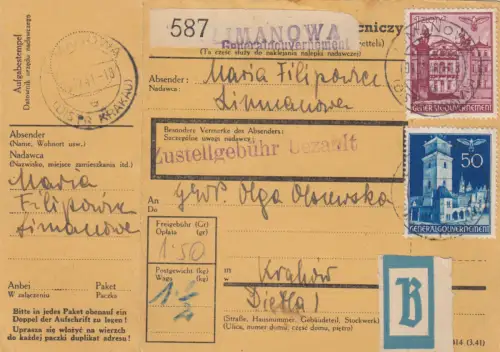 587
LIMANOWA
Generalgouvernement
(Ta część służy do naklejania nalepki nadawczej)
Aufgabestempel
Datownik urzędu nadawczego
LIMANOWA
(DISTR. KRAKAU)
Absender:
Nadawca:
Maria Filipowicz
Limanowa
Absender
(Name, Wohnort usw.)
Nadawca
(Nazwisko, miejsce zamieszkania itd.)
Maria
Filipowicz
Limanowa
Besondere Vermerke des Absenders:
Szczególne uwagi nadawcy:
Zustellgebühr bezahlt
An
Do
Olga
Freigebühr (Gr)
Opłata (gr)
1.50
Postgewicht (kg)
Waga (kg)
1 1/2
in
w
Kraków
Dietla 1
(Straße, Hausnummer, Gebäudeteil, Stockwerk)
(Ulica, numer domu, część domu, piętro)
Anbei
W załączeniu
Paket
Paczka
Bitte in jedes Paket obenauf ein
Doppel der Aufschrift zu legen!
Uprasza się włożyć na wierzch
do każdej paczki duplikat adresu!
B
814 (3.41)
GENERALGOUVERNEMENT
50
GENERALGOUVERNEMENT